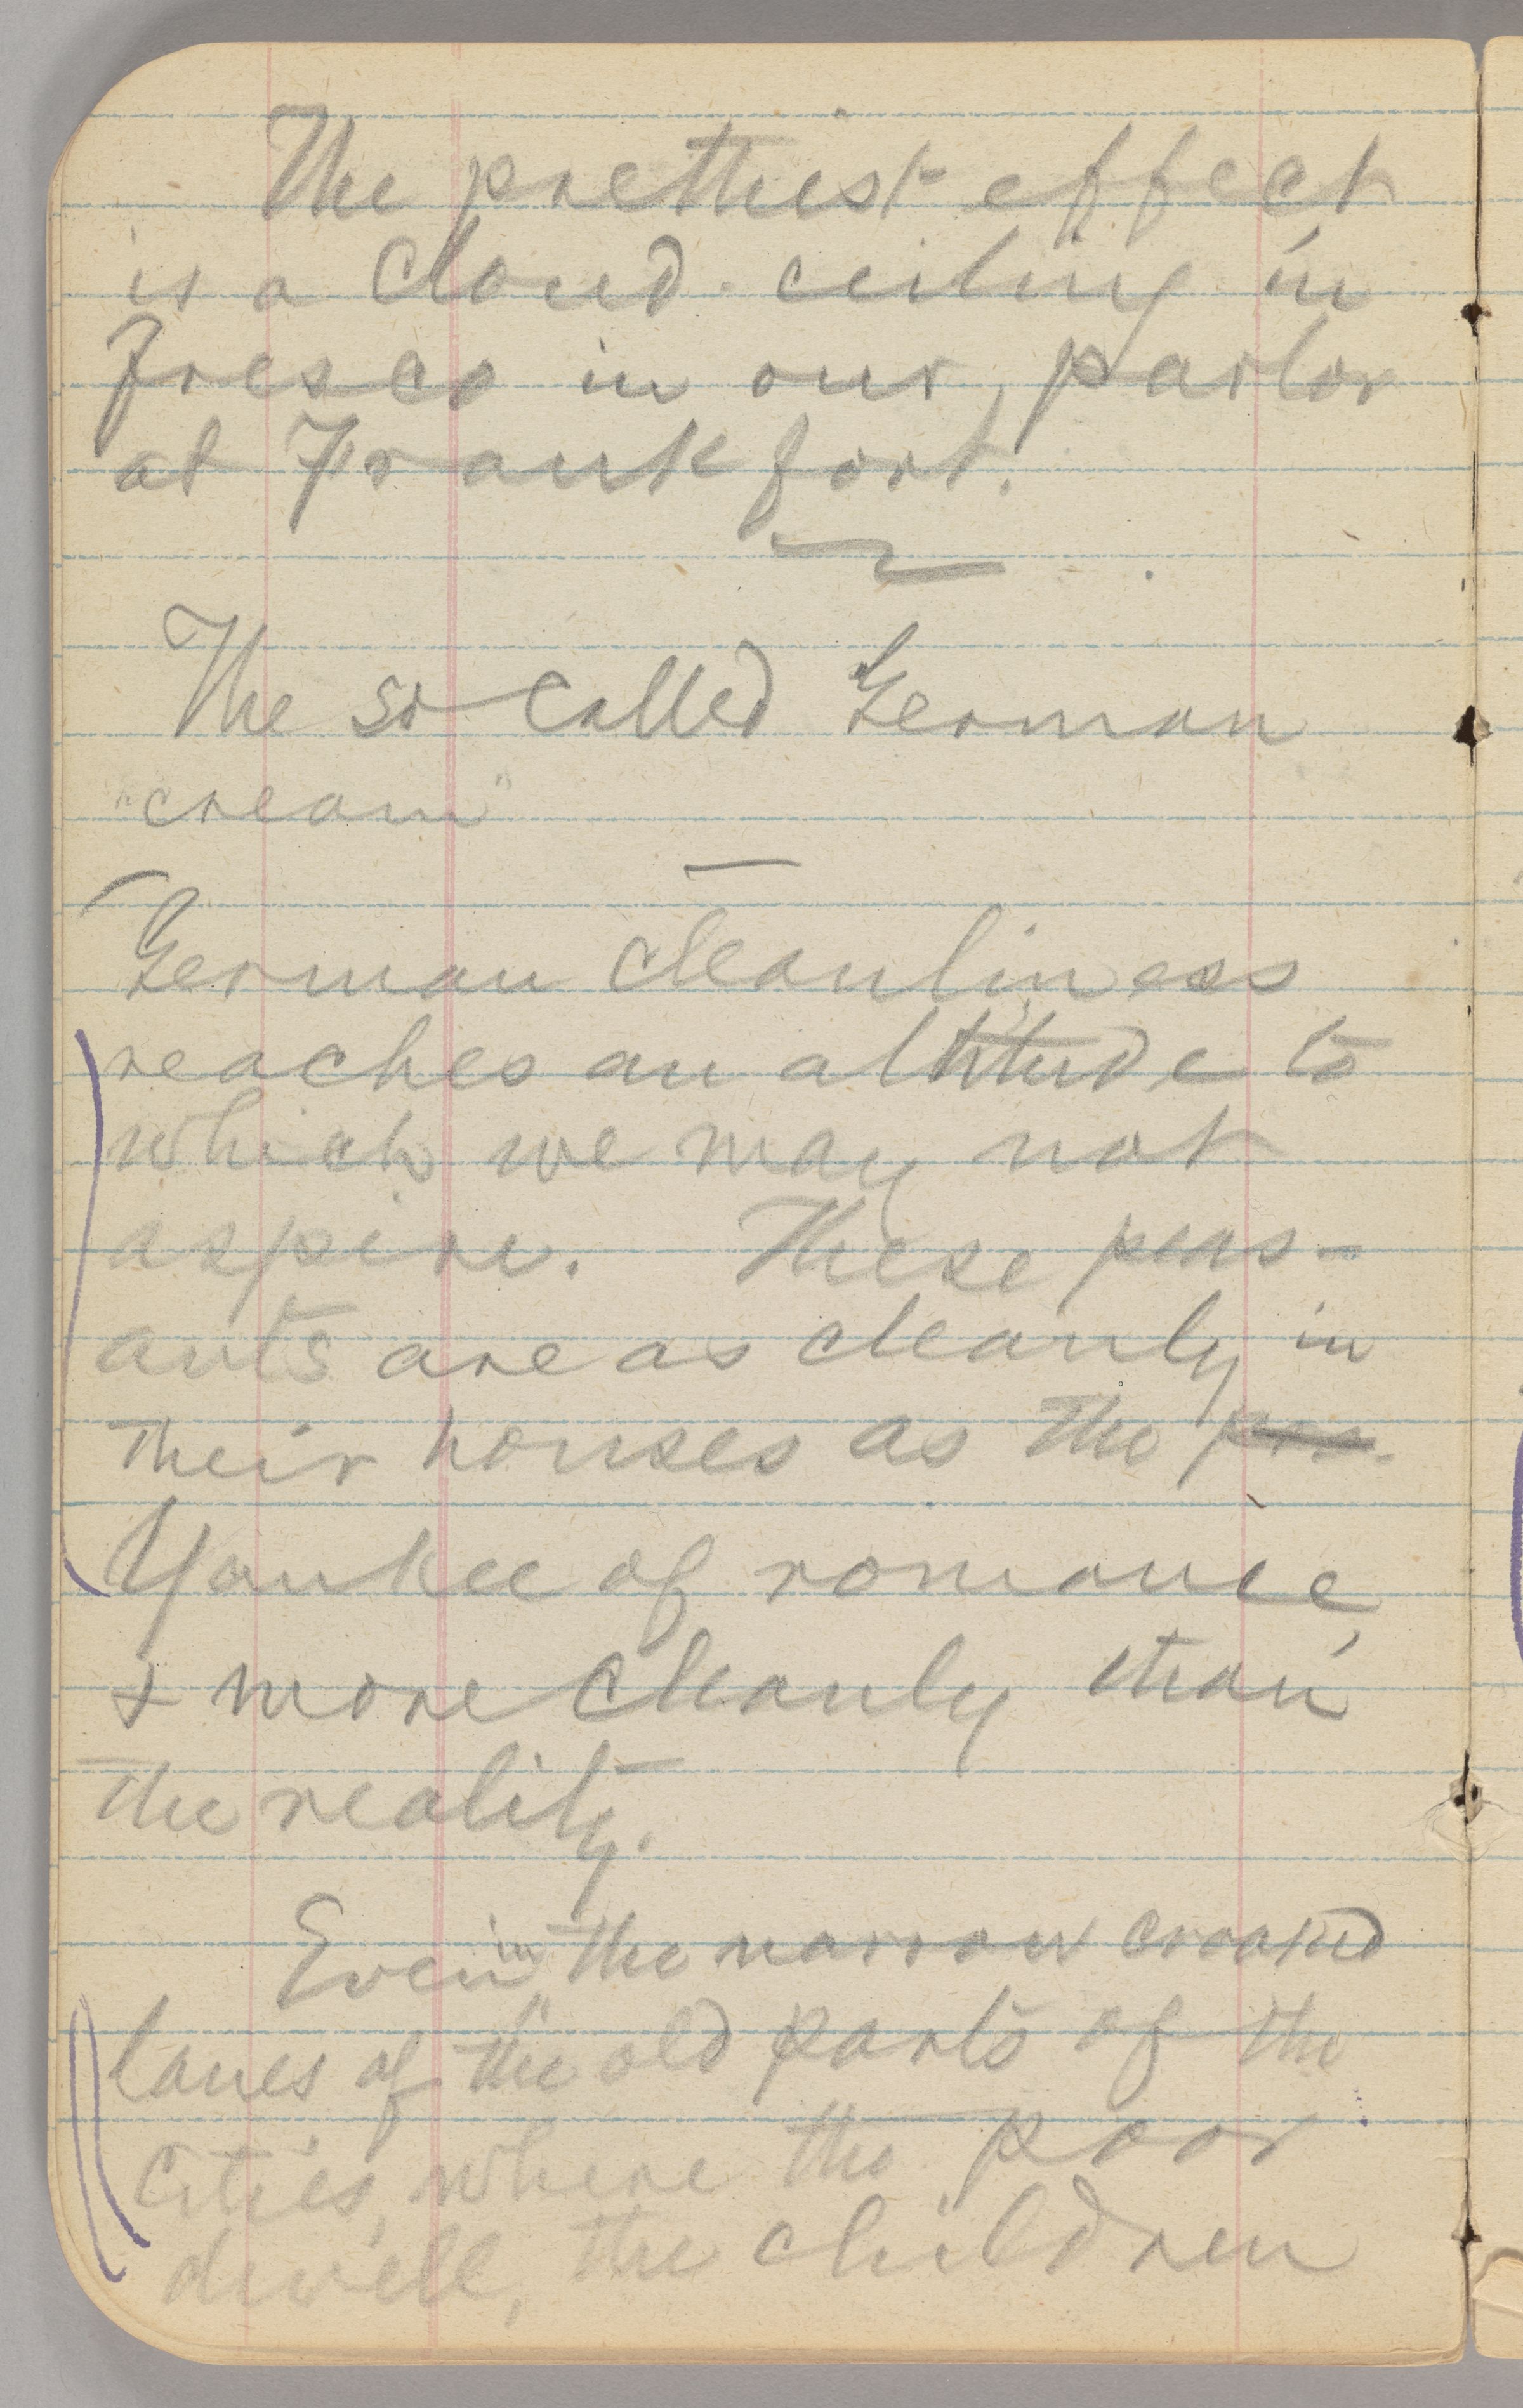 The prettiest effect
is a cloud-ceiling in
fresco in our parlor
at Frankfort.
The so called German
"cream"
German cleanliness
reaches an altitude to
which we may not
aspire. These peas-
ants are as cleanly in
their houses as the
Yankee of romance,
& more cleanly than
the reality.
Even in the narrow crooked
lanes of the old parts of the
cities, where the poor
dwell, the children